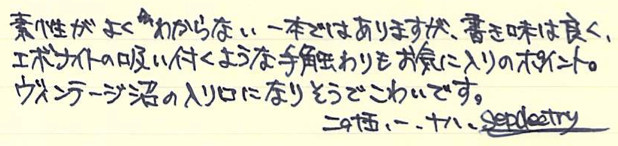 素性がよくわからない一本ではありますが、書き味は良く、
エボナイトの吸い付くような手触わりもお気に入りのポイント。
ヴィンテージ沼の入り口になりそうでこわいです。
二〇一八、